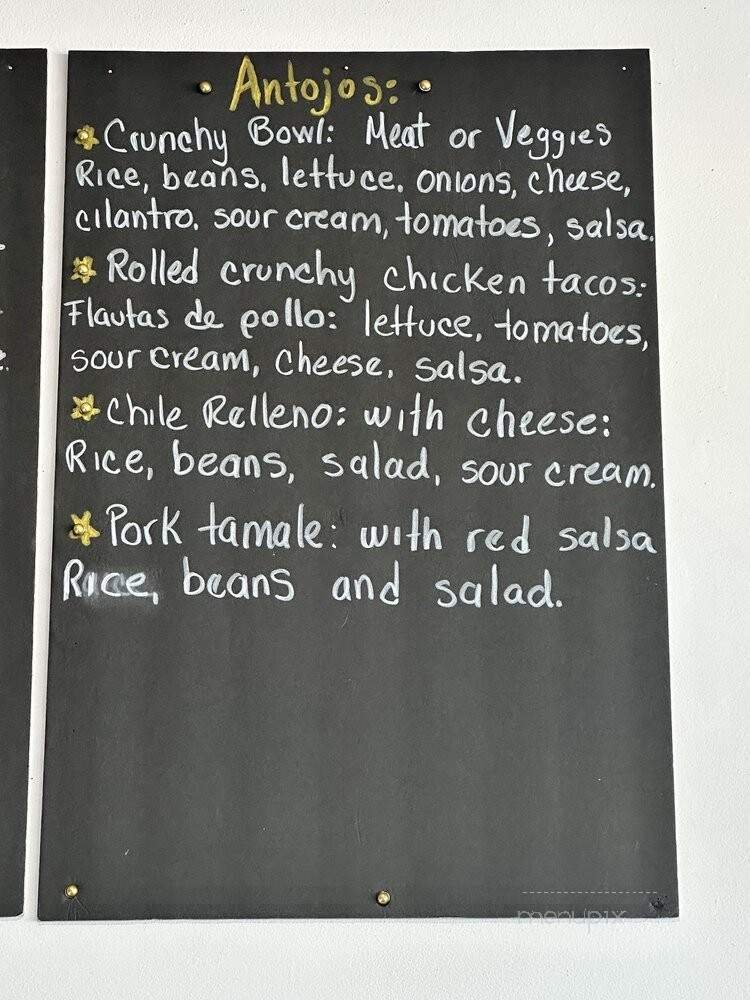 Antojos:
Crunchy Bowl: Meat or Veggies
Rice, beans, lettuce, onions, cheese,
cilantro, sour cream, tomatoes, salsa.
Rolled crunchy chicken tacos:
Flautas de pollo: lettuce, tomatoes,
sour cream, cheese, salsa.
Chile Relleno: with cheese:
Rice, beans, salad, sour cream.
Pork tamale: with red salsa
Rice, beans and salad.
menupix